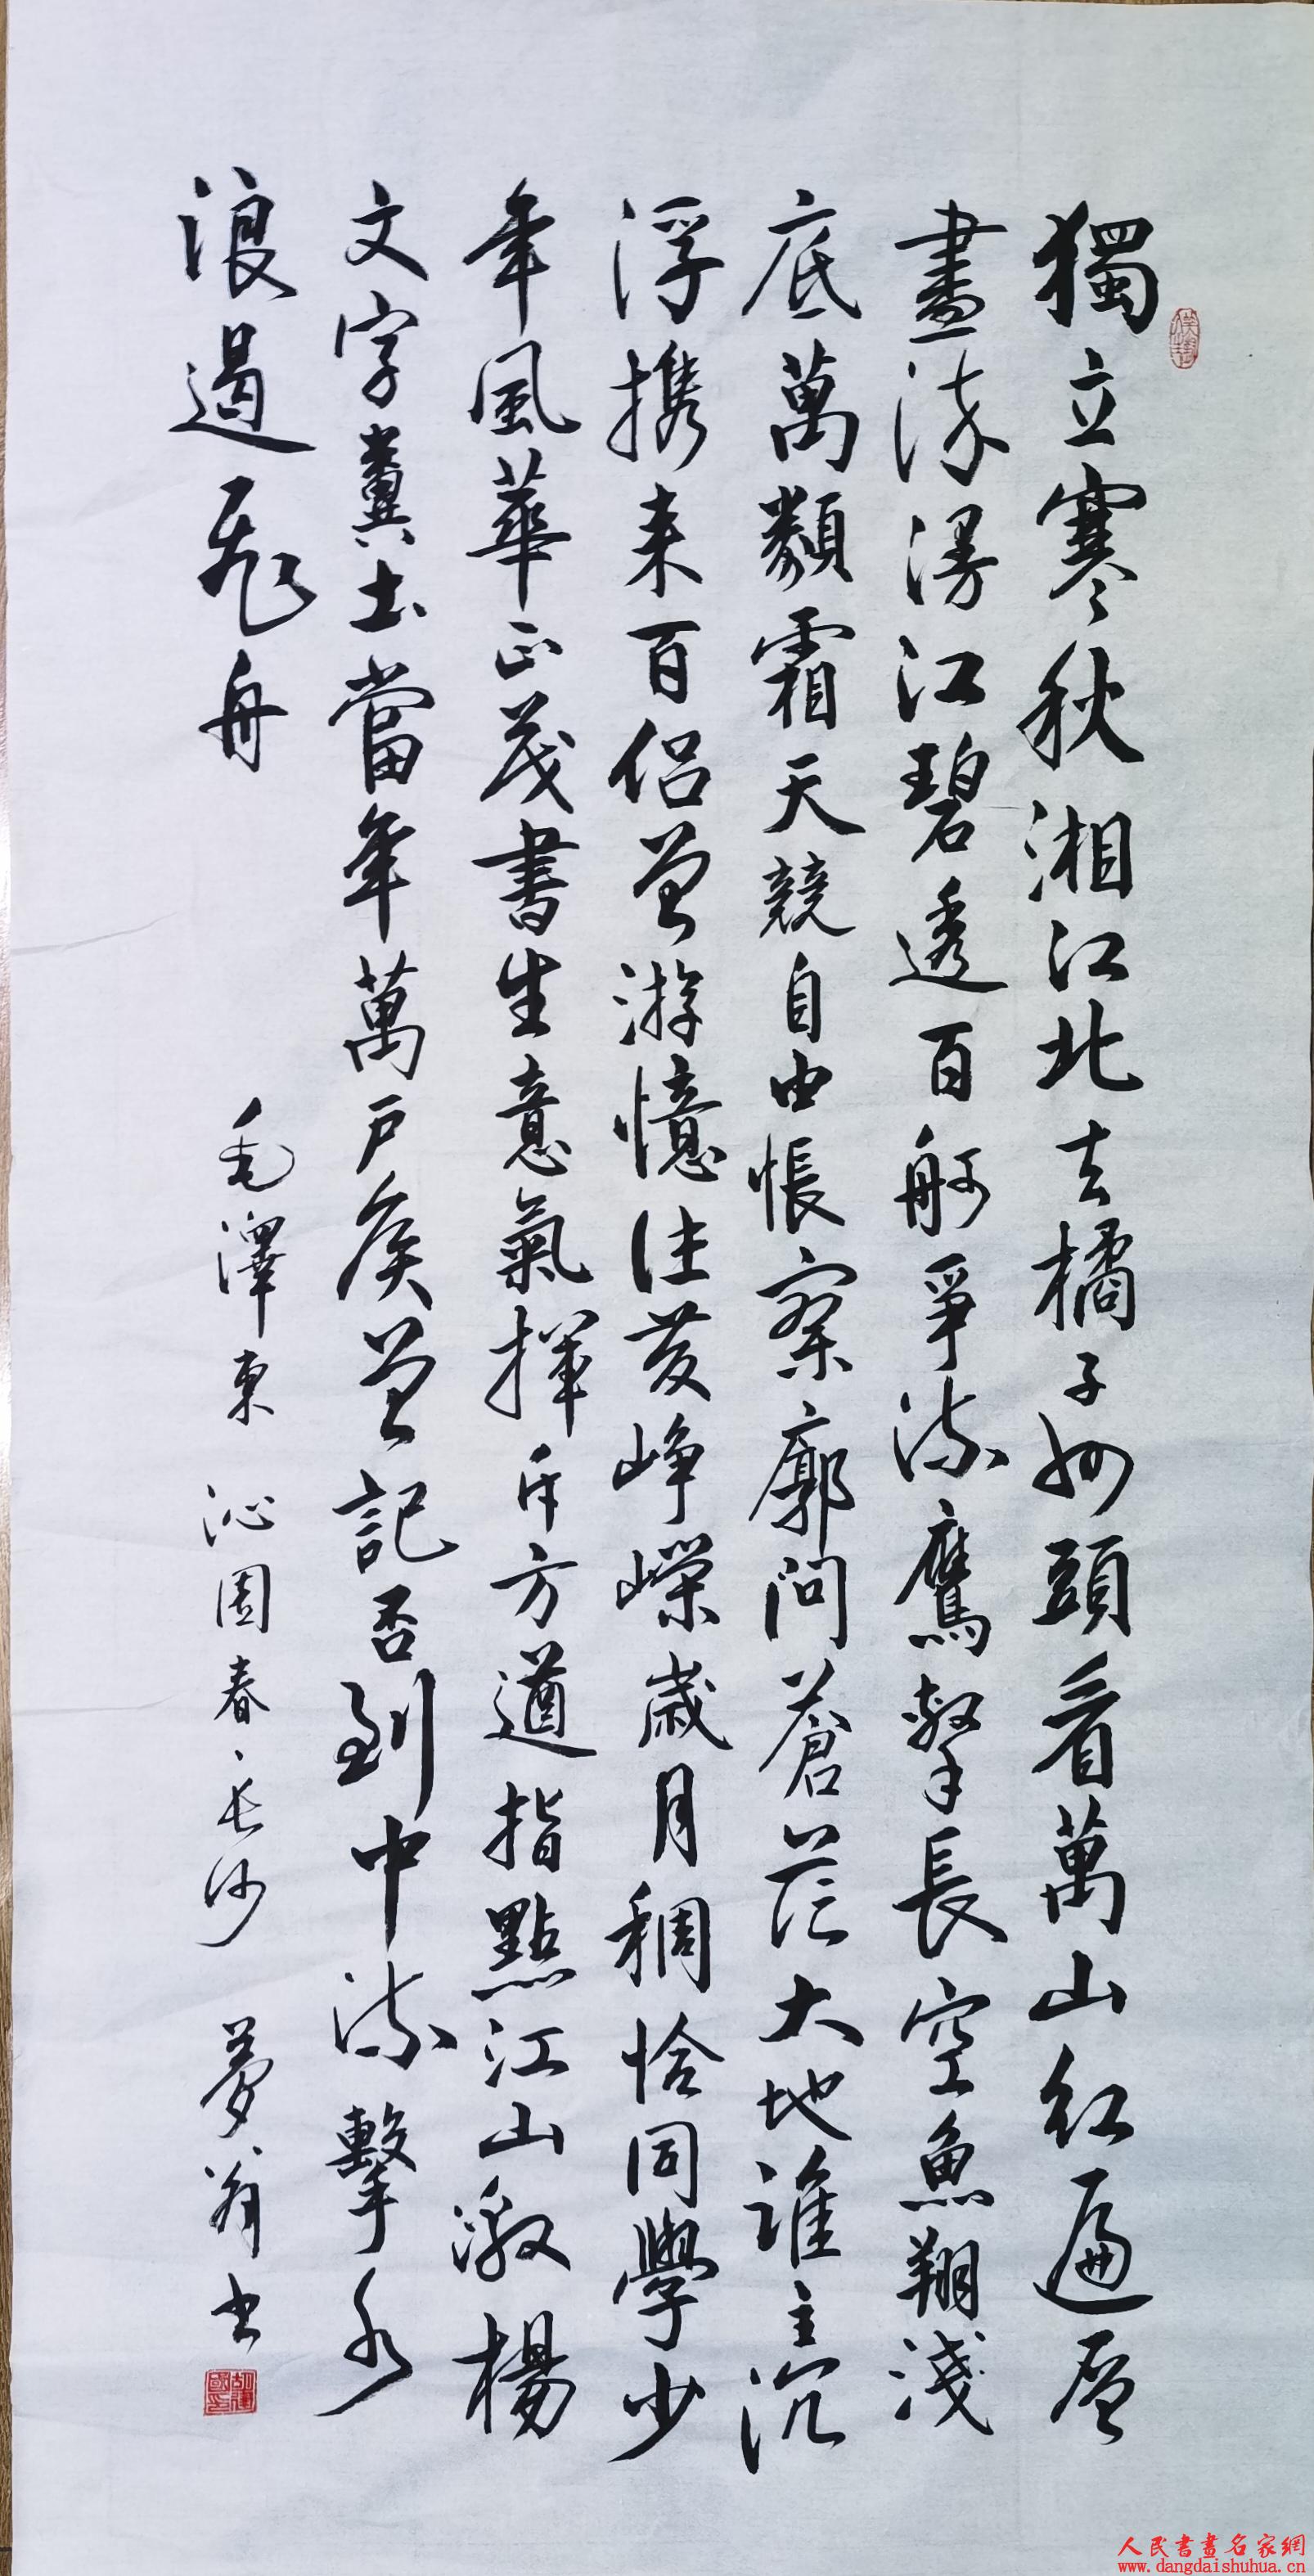 獨立寒秋湘江北去橘子州頭看萬山紅遍層
盡染漫江碧透百舸爭流鷹擊長空魚翔淺
底萬類霜天競自由悵寥廓問蒼茫大地誰主沉
浮携来百侣曾游憶往昔崢嶸歲月稠恰同學少
年風華正茂書生意氣揮斥方遒指點江山激楊
文字糞土當年萬户侯曾記否到中流擊水
浪遏飛舟
毛澤東 沁園春、長沙 夢翁书
人民書畫名家網
www.dangdaishuhua.cn